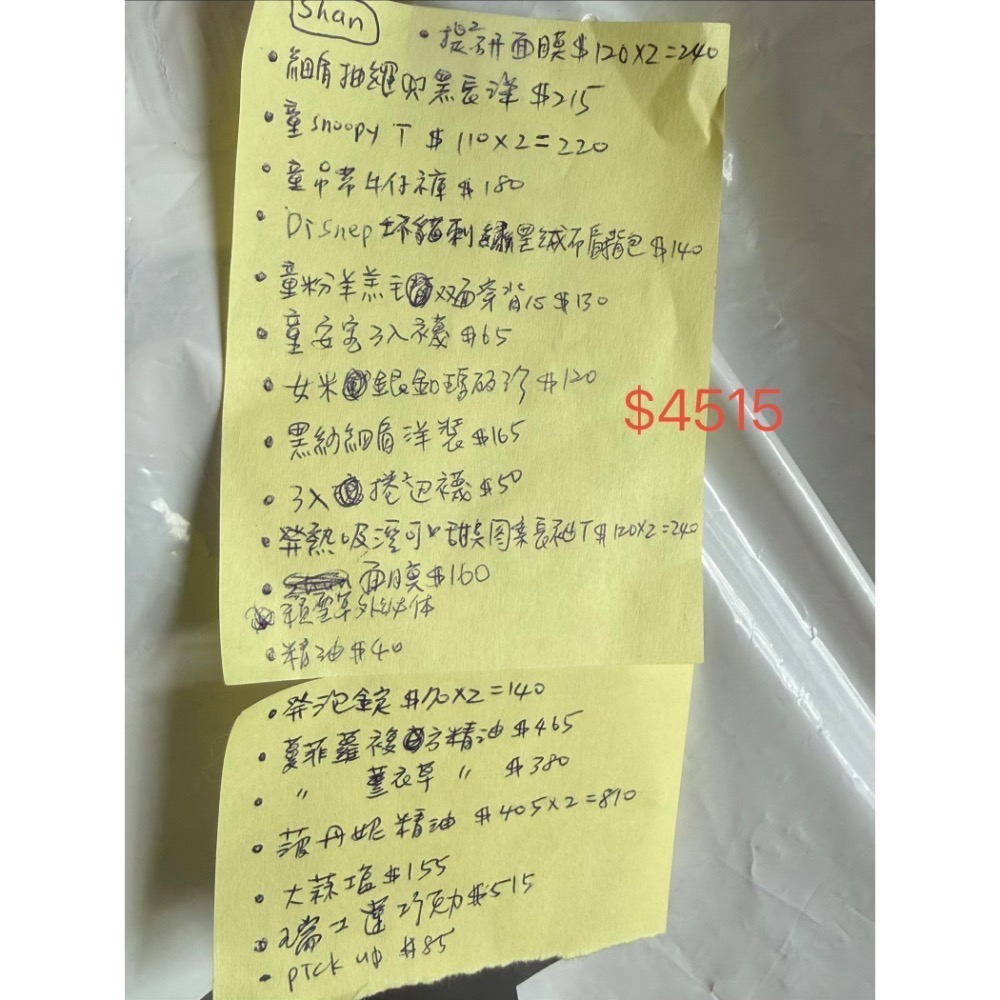 Shan
• 提研面膜 $120×2=240
• 細肩抽繩 黑長洋 $215
• 童snoopy T $110×2=220
• 童吊帶牛仔褲 $180
• Disnep 壞貓刺繡黑絨布肩背包 $140
• 童粉羊羔毛双面穿背心 $130
• 童安客3入襪 $65
• 女米銀釦瑪莉珍 $120
• 黑紗細肩洋裝 $165
• 3入捲边襪 $50
• 発熱吸溼可口甜美图案長袖T $120×2=240
• 面膜 $160
• 精油 $40
• 発泡錠 $70×2=140
• 蔓菲蘿複方精油 $465
• 〃 薰衣草 〃 $380
• 菠丹妮精油 $405×2=810
• 大蒜塩 $155
• 瑞士蓮巧克力 $515
• PICK UP $85
$4515